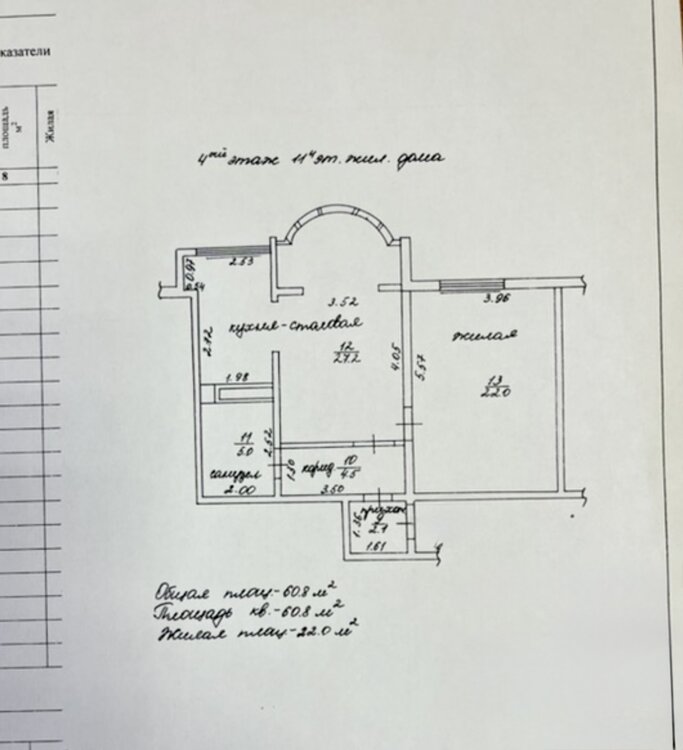 казатели
площадь
м²
Жилая
8
4ый этаж 11и эт. жил. дома
2.53
0.97
0.54
3.52
3.96
кухня-столовая
жилая
2.72
12
27.2
4.05
5.57
13
22.0
1.98
11
5.0
2.52
санузел
2.00
1.30
корид
10
4.5
3.50
прихож
9
2.1
1.36
1.61
Общая площ-60.8 м²
Площадь кв.-60.8 м²
Жилая площ-22.0 м²